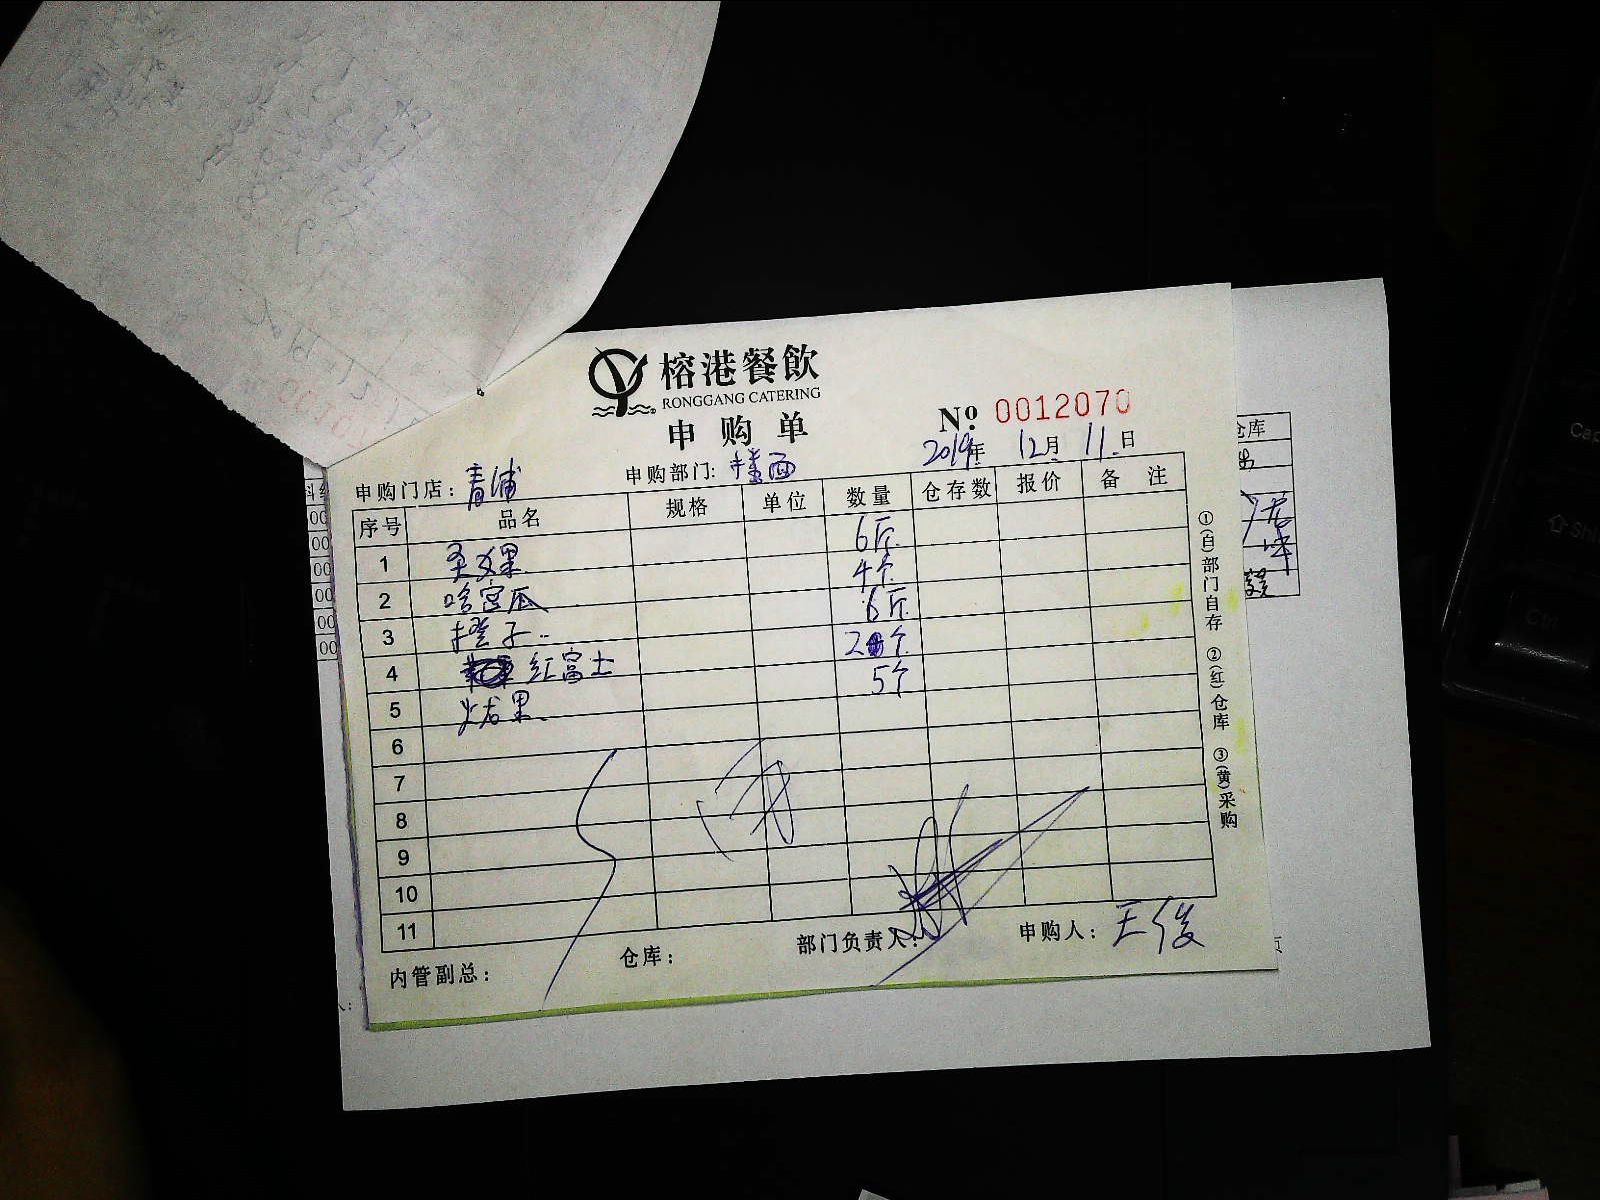 榕港餐飲
RONGGANG CATERING
申购单
Nº: 0012070
2019年 12月 11日
申购门店: 青浦 申购部门: 楼面
序号 品名 规格 单位 数量 仓存数 报价 备注
1 圣女果 6斤
2 哈宫瓜 4个
3 橙子 6斤
4 红富士 2个
5 火龙果 5个
6
7
8
9
10
11
内管副总: 仓库: 部门负责人: 申购人: 王俊
①(白)部门自存 ②(红)仓库 ③(黄)采购
仓库